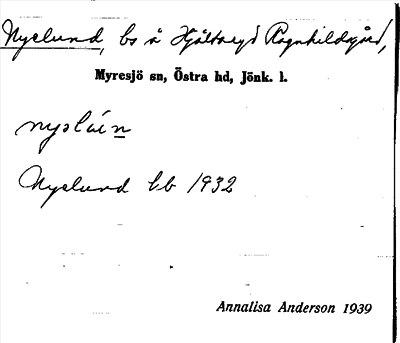 Nyelund, bs å Hjältaryd Ragnhildsgård,
Myresjö sn, Östra hd, Jönk. l.
Nyelund bb 1932
Annalisa Anderson 1939